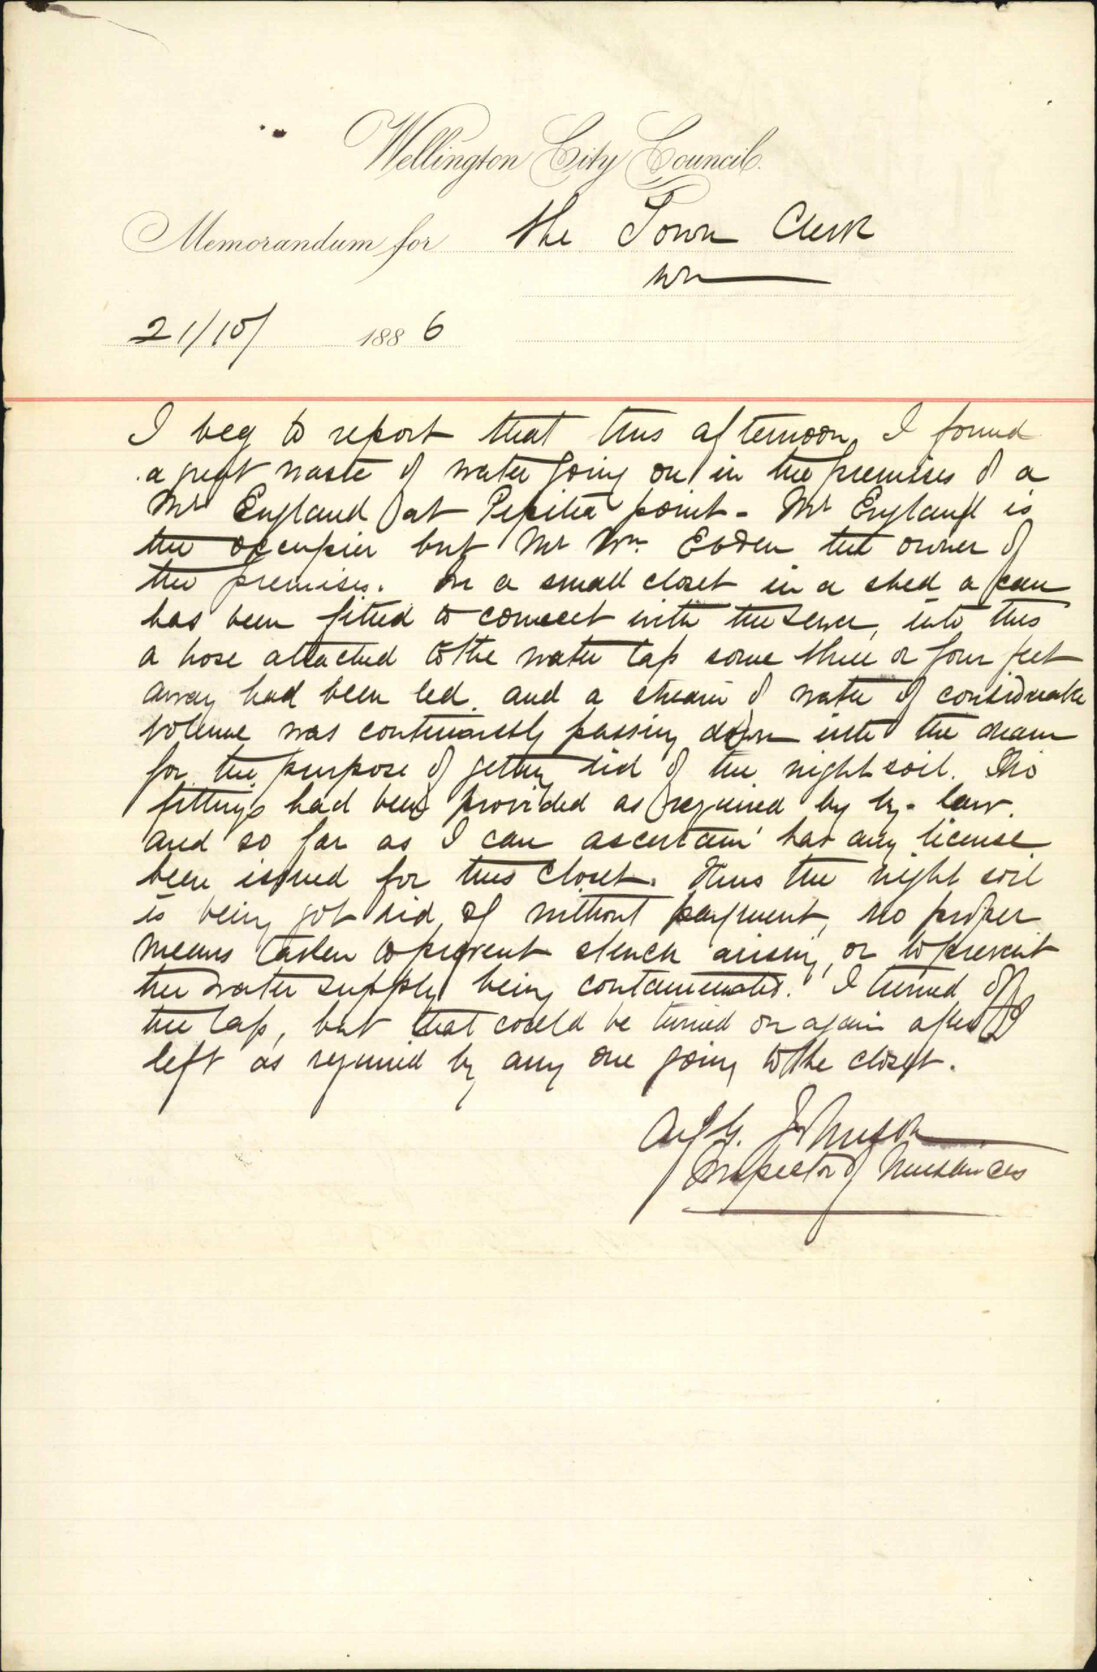 Wellington City Council.
Memorandum for the Town Clerk
Wn
21/10/ 1886
I beg to report that this afternoon, I found
a great waste of water going on in the premises of a
Mr England at Pipitea point - Mr England is
the occupier but Mr Wm Ebden the owner of
the premises. In a small closet in a shed a pan
has been fitted to connect with the sewer, into this
a hose attached to the water tap some three or four feet
away had been led, and a stream of water of considerable
volume was continuously passing down into the drain
for the purpose of getting rid of the night soil. No
fittings had been provided as required by by-law.
and so far as I can ascertain has any license
been issued for this closet. Thus the night soil
is being got rid of without payment, no proper
means taken to prevent stench arising, or to prevent
the water supply being contaminated. I turned off
the tap, but that could be turned on again after I
left as required by any one going to the closet.
Johnson
Inspector of Nuisances